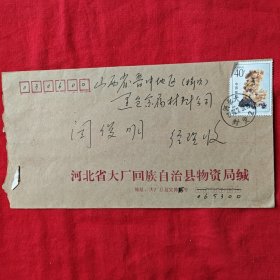 030600
40分
山西省晋中地区(榆次)
黑色金属材料公司
闫俊明 经理收
河北省大厂回族自治县物资局缄
065300